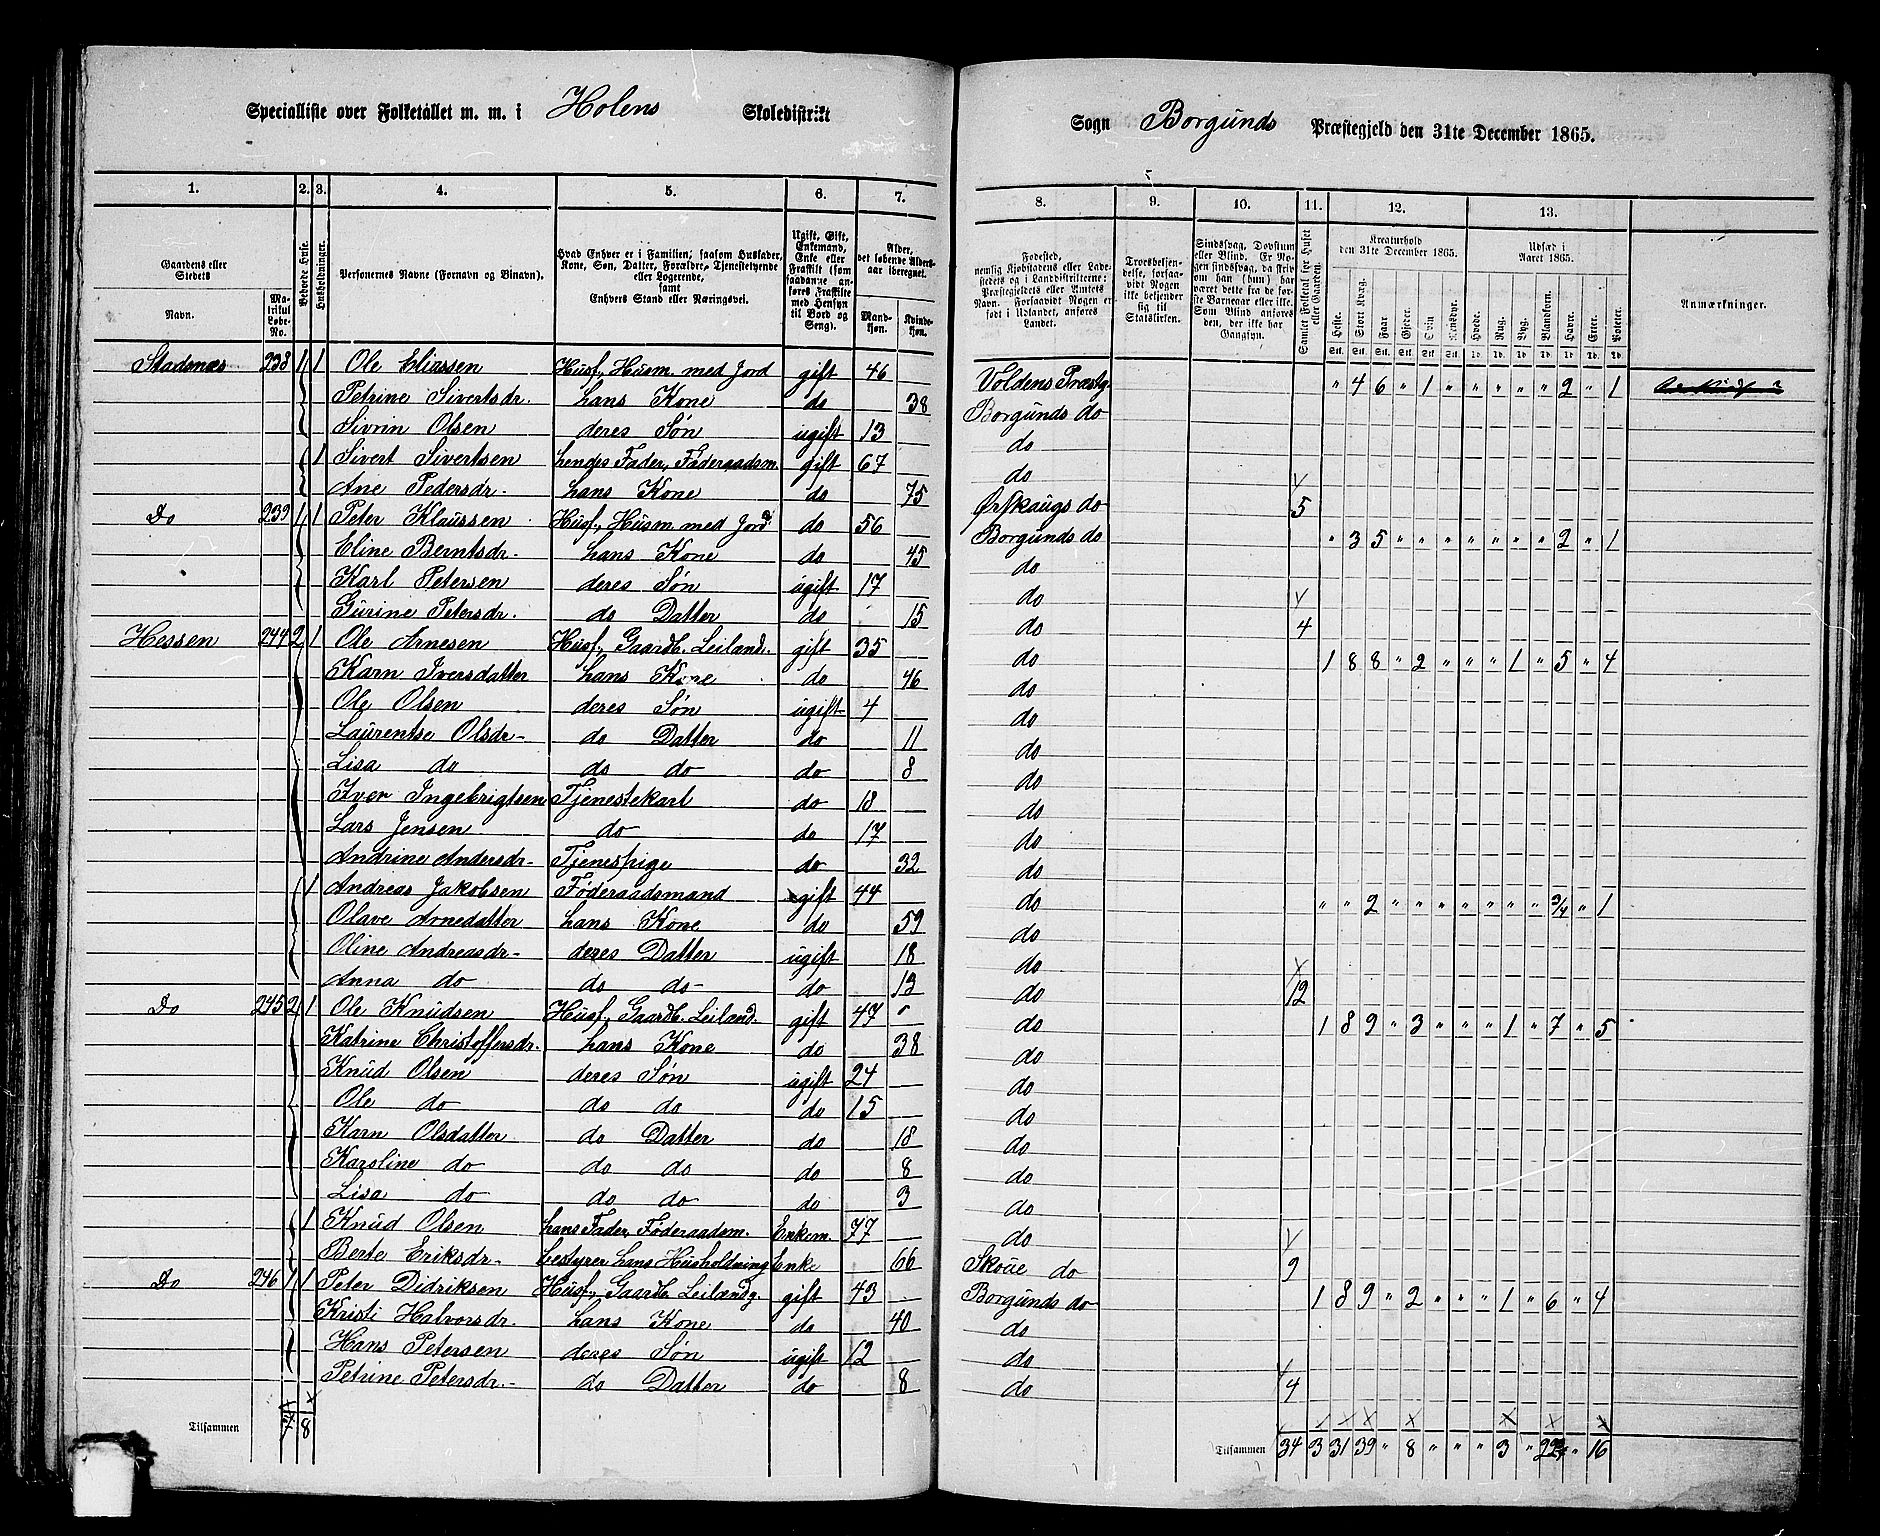 Specialliste over Folketallet m. m. i Holens Skoledistrikt
Sogn Borgunds Præstegjeld den 31te December 1865.
1. 2. 3. 4. 5. 6. 7.
8. 9. 10. 11. 12. 13.
Gaardens eller Stedets
Navn. Matrikul Løbe-No.
Beboede Huse.
Husholdninger.
Personernes Navne (Fornavn og Tilnavn).
Hvad Enhver er i Familien, saasom Husfader, Kone, Søn, Datter, Forældre, Tjenestetyende eller Logerende, samt Enhvers Stand eller Næringsvei.
Ugift, Gift, Enkemand, Enke eller Fraskilt (som saadanne anføres Fraskilte med Hensyn til Bord og Seng).
Alder, det løbende Alders-aar iberegnet.
Mandkjøn. Kvindekjøn.
Fødested, nemlig Kjøbstadens eller Ladestedets og i Landdistrikterne: Præstegjeldets eller Amtets Navn. Forsaavidt Nogen er født i Udlandet, anføres Landet.
Troesbekjendelse, forsaavidt Nogen ikke bekjender sig til Statskirken.
Sindssvag, Døvstum eller Blind. Er Nogen sindssvag, da skrives om han (hun) har været dette fra de første Barneaar eller ikke. Som Blind anføres den, der ikke har Gangsyn.
Samlet Folketal for Huset eller Gaarden.
Kreaturhold den 31te December 1865.
Heste. Stort Kvæg. Faar Gjeder. Svin Rensdyr.
Udsæd i Aaret 1865.
Hvede. Rug. Byg. Blandkorn. Havre. Erter. Poteter.
Anmærkninger.
Stadsnæs 238 1 1 Ole Eliassen Husf., Husm. med Jord gift 46 Voldens Præstg. " 4 6 " 1 " " " " " 2 " 1
Petrine Sivertsdr. hans Kone do 38 Borgunds do
Sivrin Olsen deres Søn ugift 13 do
1 Sivert Sivertsen hendes Fader, Føderaadsm. gift 67 do
Ane Pedersdr. hans Kone do 75 Ørskougs do 5
Do 239 1 1 Peter Klaussen Husf., Husm. med Jord do 56 Borgunds do " 3 5 " " " " " " " 2 " 1
Eline Berntsdr. hans Kone do 45 do
Karl Petersen deres Søn ugift 17 do
Gurine Petersdr. do Datter do 15 do 4
Hessen 244 2 1 Ole Arnesen Husf., Gaardb. Leiland. gift 35 do 1 8 8 " 2 " " " 1 " 5 " 4
Karn Iversdatter hans Kone do 46 do
Ole Olsen deres Søn ugift 4 do
Laurentse Olsdr. do Datter do 11 do
Lisa do do do do 8 do
Iver Ingebrigtsen Tjenestekarl do 18 do
Lars Jensen do do 17 do
Andrine Andersdr. Tjenespige do 32 do
1 Andreas Jakobsen Føderaadsmand gift 44 do " " 2 " " " " " " " 3/4 " 1
Olave Arnedatter hans Kone do 59 do
Oline Andreasdr. deres Datter ugift 18 do
Anna do do do do 13 do 12
Do 245 2 1 Ole Knudsen Husf., Gaardb. Leiland. gift 47 do 1 8 9 " 3 " " " 1 " 7 " 5
Katrine Christoffersdr. hans Kone do 38 do
Knud Olsen deres Søn ugift 24 do
Ole do do do do 15 do
Karn Olsdatter do Datter do 18 do
Karsline do do do do 8 do
Lisa do do do do 3 do
1 Knud Olsen hans Fader, Føderaadsm. Enkem. 77 do
Berte Eriksdr. bestyrer hans Husholdning Enke 66 Skoue do 9
Do 246 1 1 Peter Didriksen Husf., Gaardb. Leilændg. gift 43 Borgunds do 1 8 9 " 2 " " " 1 " 6 " 4
Kristi Halvorsdr. hans Kone do 40 do
Hans Petersen deres Søn ugift 12 do
Petrine Petersdr. do Datter do 8 do 4
Tilsammen 7 8
Tilsammen 34 3 31 39 " 8 " " " 3 " 22 3/4 " 16